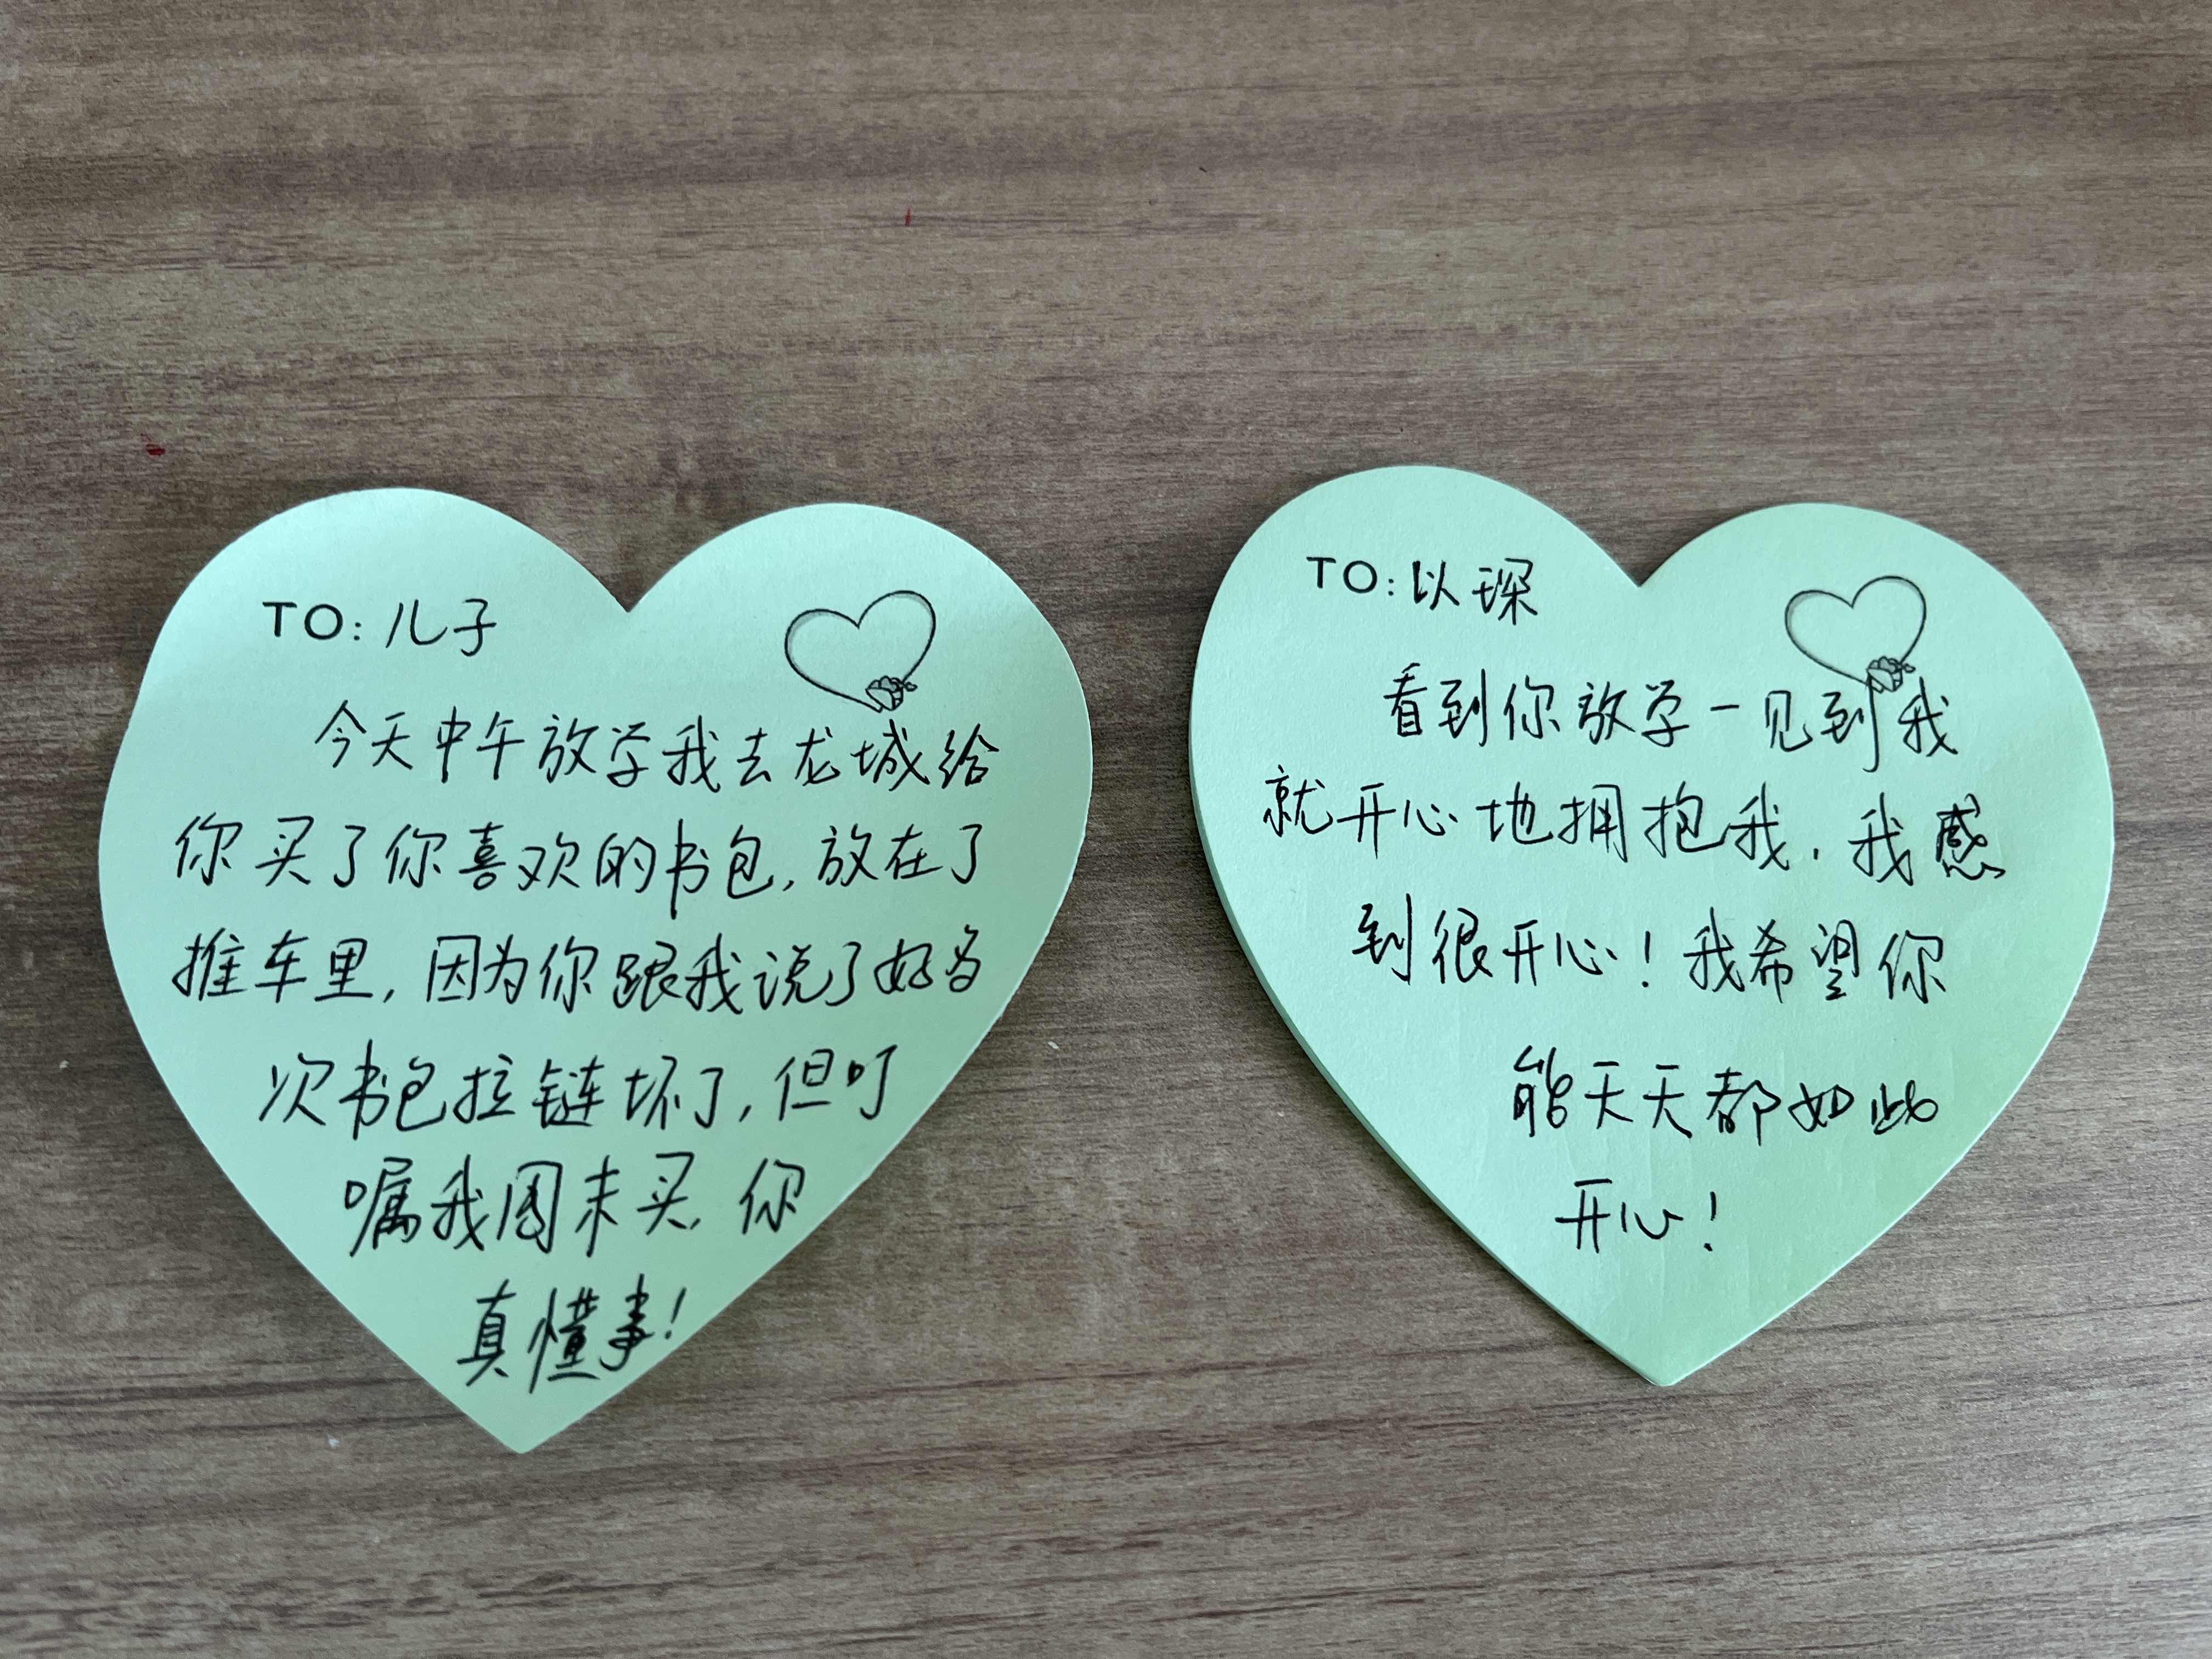 TO: 儿子
今天中午放学我去龙城给
你买了你喜欢的书包,放在了
推车里,因为你跟我说了好多
次书包拉链坏了,但叮
嘱我周末买,你
真懂事!
TO: 以琛
看到你放学一见到我
就开心地拥抱我,我感
到很开心!我希望你
能天天都如此
开心!